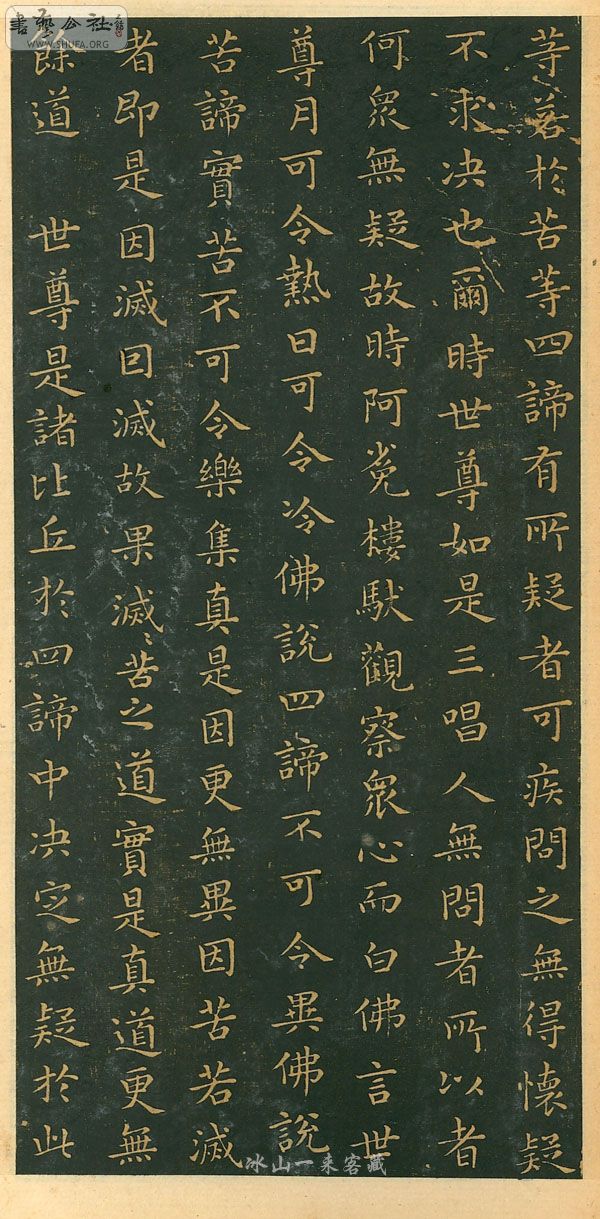 等若於苦等四諦有所疑者可疾問之無得懷疑
不求决也爾時世尊如是三唱人無問者所以者
何衆無疑故時阿㝹樓馱觀察衆心而白佛言世
尊月可令熱日可令冷佛說四諦不可令異佛說
苦諦實苦不可令樂集真是因更無異因苦若滅
者即是因滅因滅故果滅滅苦之道實是真道更無
餘道 世尊是諸比丘於四諦中决定無疑於此
書藝公社
WWW.SHUFA.ORG
冰山一来客藏